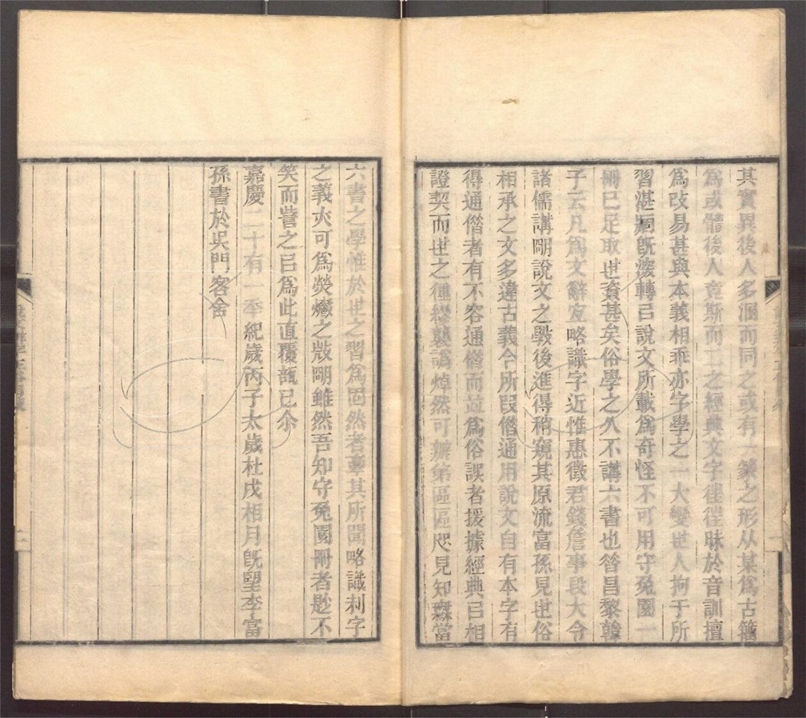 其實異後人多溷而同之或有一篆之形从某爲古籀
爲或體後人竟斯而二之經典文字徃徃昧於音訓擅
爲攺易甚與本義相乖亦字學之一大變世人拘于所
習湛㴾旣㳒轉㠯說文所載爲奇怪不可用守兔園一
冊已足取世資甚矣俗學之久不講六書也昝昌黎韓
子云凡爲文辭宐略識字近惟惠徵君錢詹事段大令
諸儒講朙說文之毀後進得稍窺其原流富孫見世俗
相承之文多違古義今所叚僃通用說文自有本字有
得通僃者有不容通僃而竝爲俗誤者援據經典㠯相
證契而世之䡮繆襲譌焯然可辦第區區咫見知𣡸當
六書之學惟於世之習爲固然者舉其所聞略識利字
之義夾可爲熒爝之㪇朙雖然吾知守兔園冊者尟不
笑而訾之㠯爲此直覆瓿已尒
嘉慶二十有一秊紀歲丙子太歲杜戌相月旣望李富
孫書於吳門客舍